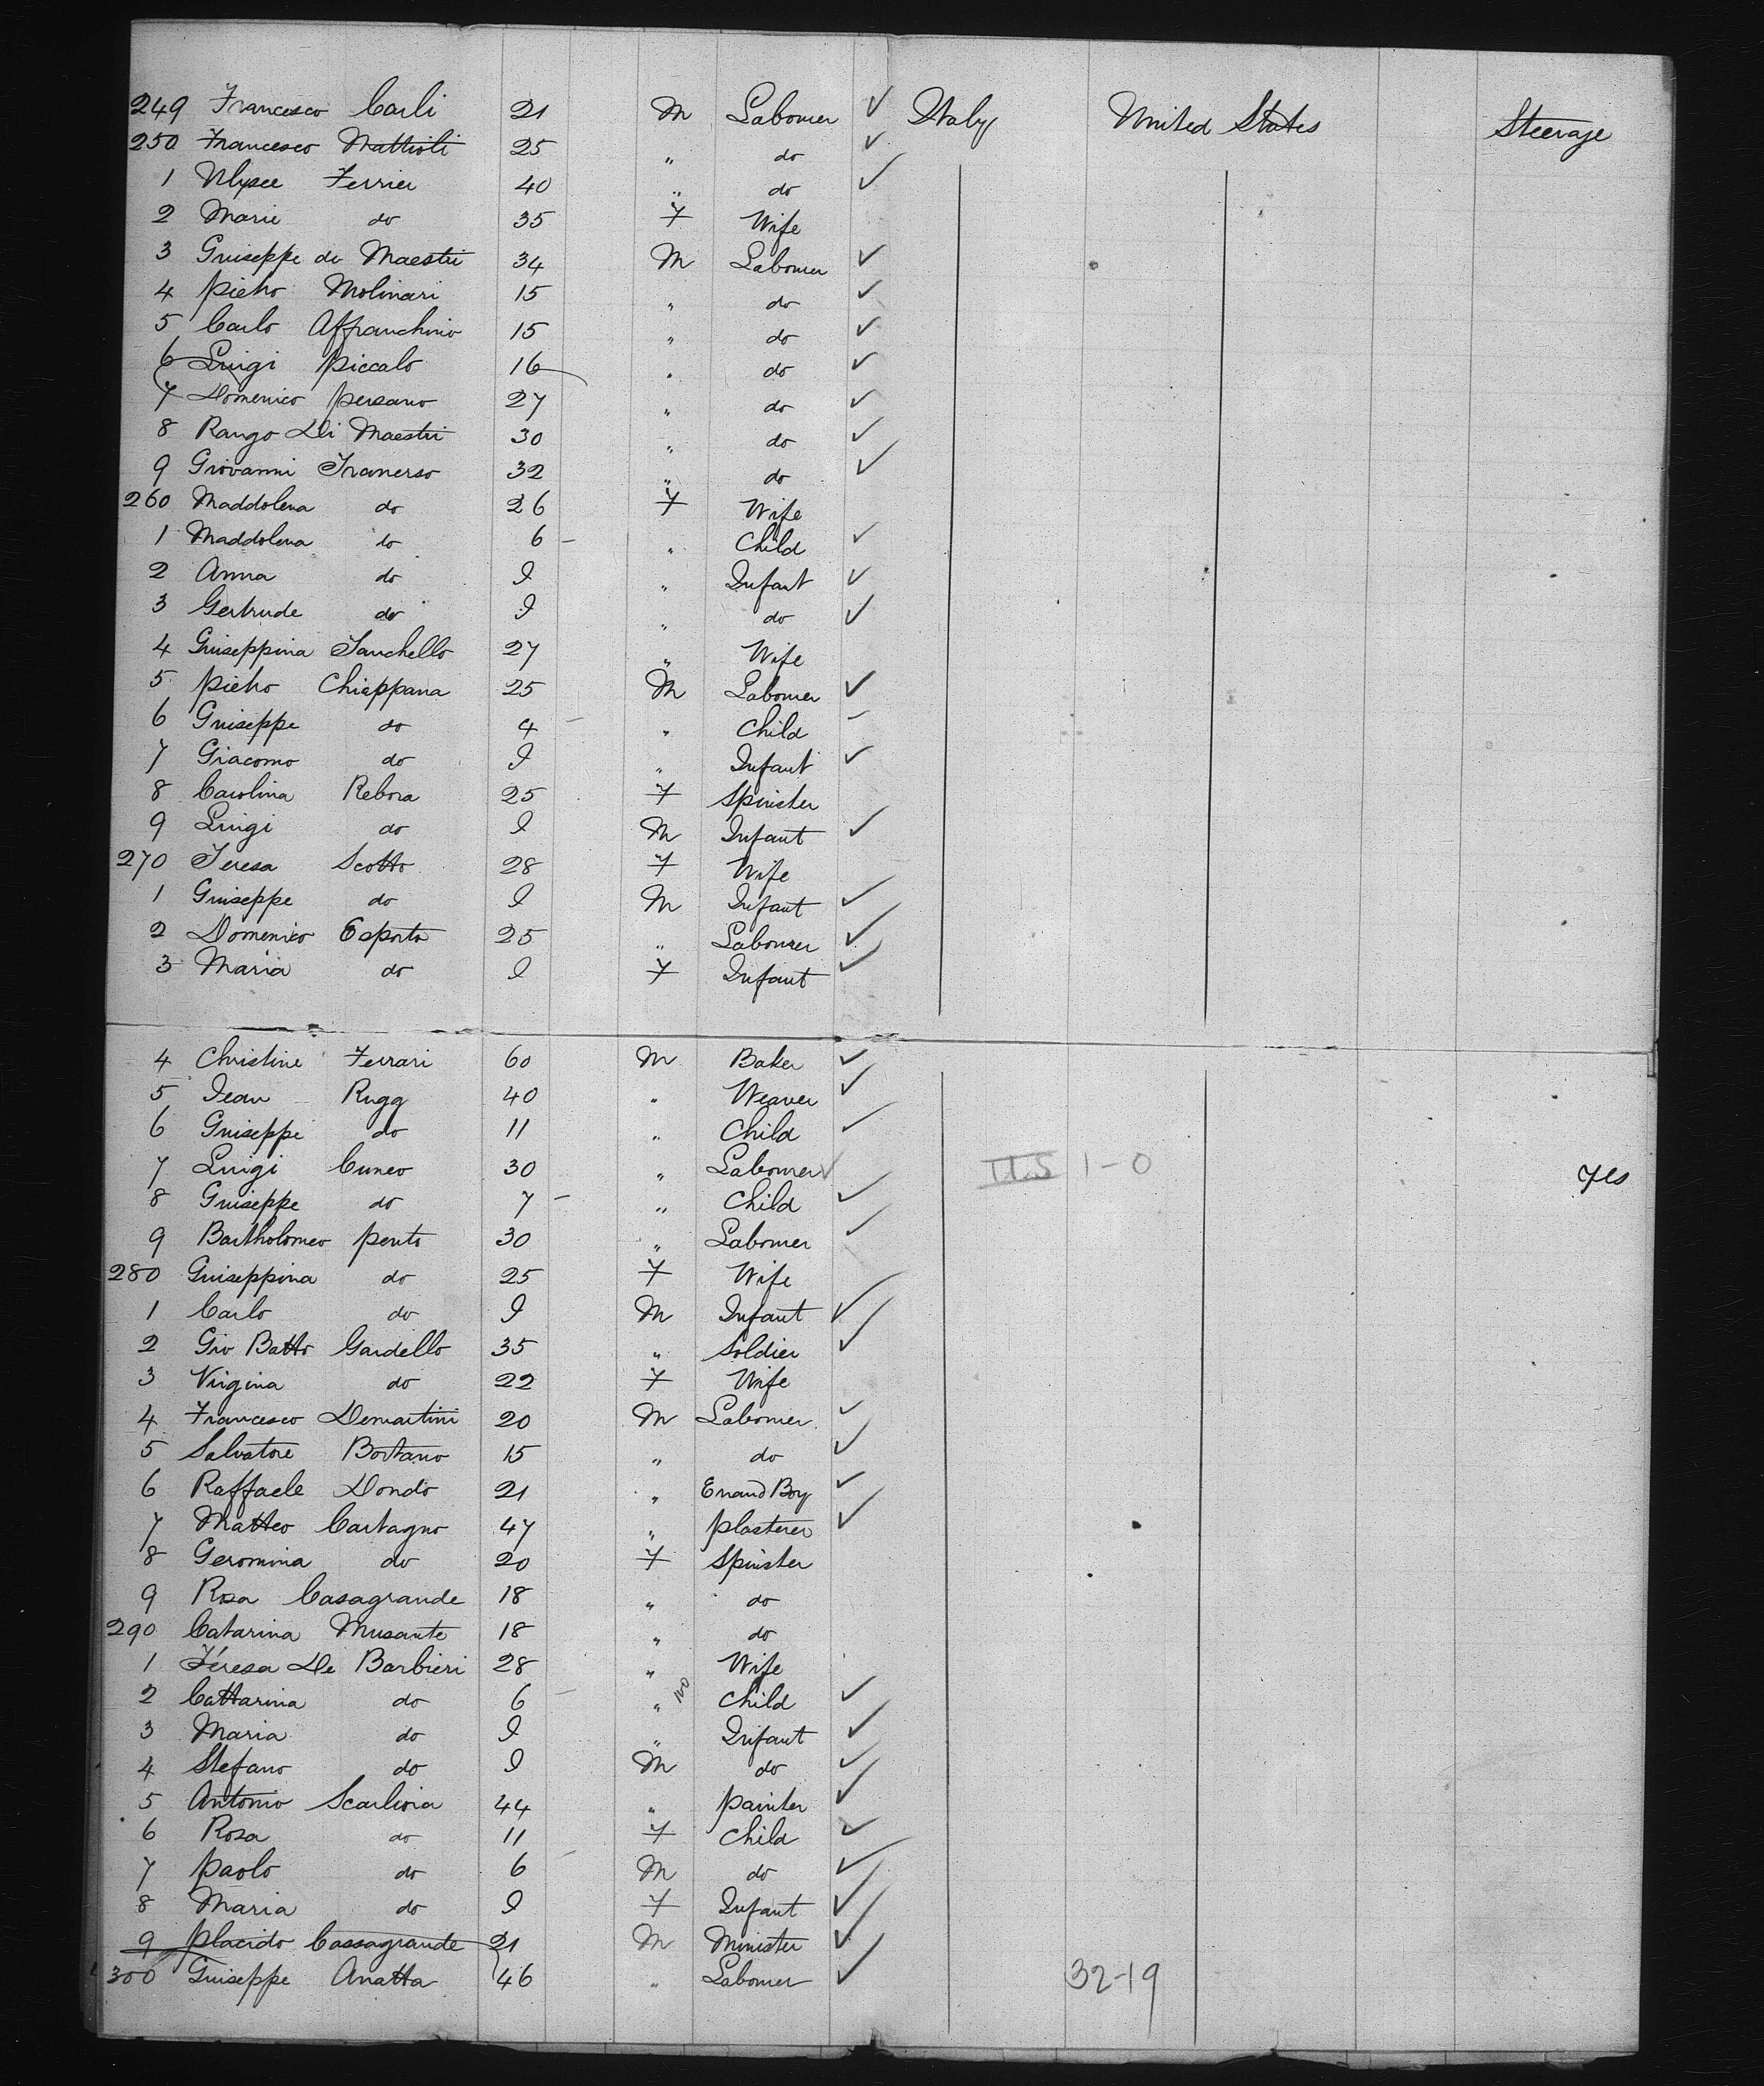 249 Francesco Carli 21 M Labourer ✓ Italy United States Steerage
250 Francesco Mattioli 25 " do ✓
1 Ulysee Ferrier 40 " do ✓
2 Marie do 35 F Wife
3 Guiseppe de Maestri 34 M Labourer ✓
4 Pietro Molinari 15 " do ✓
5 Carlo Affranchino 15 " do ✓
6 Luigi Piccalo 16 " do ✓
7 Domenico Persano 27 " do ✓
8 Rango Di Maestri 30 " do ✓
9 Giovanni Traverso 32 " do ✓
260 Maddolena do 26 F Wife
1 Maddolena do 6 - " Child ✓
2 Anna do I " Infant ✓
3 Gertrude do I " do ✓
4 Guiseppina Fanchello 27 " Wife
5 Pietro Chiappana 25 M Labourer ✓
6 Guiseppe do 4 - " Child -
7 Giacomo do I " Infant ✓
8 Carolina Rebora 25 F Spinster
9 Luigi do I M Infant ✓
270 Teresa Scotto 28 F Wife
1 Guiseppe do I M Infant ✓
2 Domenico Esporto 25 " Labourer ✓
3 Maria do I F Infant ✓
4 Christine Ferrari 60 M Baker ✓
5 Jean Rugg 40 " Weaver ✓
6 Guiseppe do 11 " Child ✓
7 Luigi Cuneo 30 " Labourer ✓ U.S 1-0 yes
8 Guiseppe do 7 - " Child ✓
9 Bartholomeo Pento 30 " Labourer ✓
280 Guiseppina do 25 F Wife
1 Carlo do I M Infant ✓
2 Gio Batto Gardello 35 " Soldier ✓
3 Virgina do 22 F Wife
4 Francesco Demartini 20 M Labourer ✓
5 Salvatore Bortano 15 " do ✓
6 Raffaele Dondo 21 " Errand Boy ✓
7 Matteo Cartagno 47 " Plasterer ✓
8 Geromina do 20 F Spinster
9 Rosa Casagrande 18 " do
290 Catarina Musante 18 " do
1 Téresa De Barbieri 28 " Wife
2 Cattarina do 6 - " Child ✓
3 Maria do I " Infant ✓
4 Stefano do I M do ✓
5 Antonio Scarlioia 44 " Painter ✓
6 Rosa do 11 F Child ✓
7 Paolo do 6 - M do ✓
8 Maria do I F Infant ✓
9 Placido Cassagrande 21 M Minister ✓
300 Guiseppe Anatta 46 " Labourer ✓ 32-19